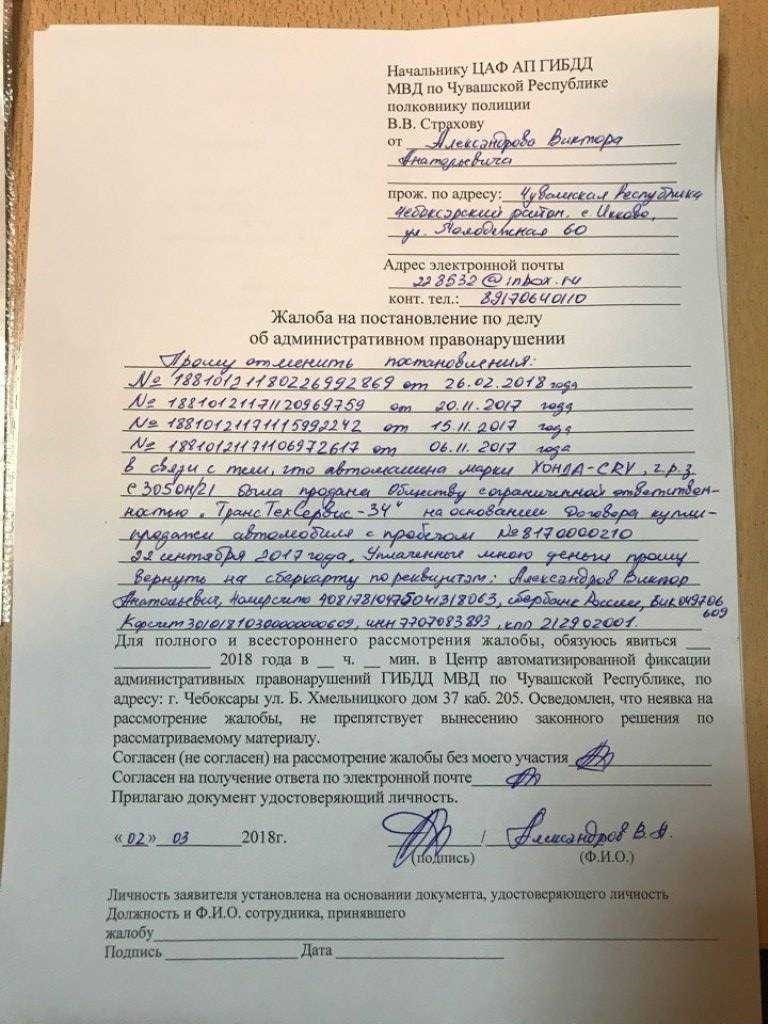 Начальнику ЦАФ АП ГИБДД
МВД по Чувашской Республике
полковнику полиции
В.В. Страхову
от Александрова Виктора
Анатольевича
прож. по адресу: Чувашская Республика
Чебоксарский район. с. Ишково,
ул. Молодежная 60
Адрес электронной почты
228532@inbox.ru
конт. тел.: 89170640110
Жалоба на постановление по делу
об административном правонарушении
Прошу отменить постановления:
№ 18810121180226992869 от 26.02.2018 года
№ 18810121171120969759 от 20.11.2017 года
№ 18810121171115992242 от 15.11.2017 года
№ 18810121171106972617 от 06.11.2017 года
в связи с тем, что автомашина марки ХОНДА-CRV, г.р.з.
С305ОН/21 была продана Обществу с ограниченной ответствен-
ностью „ТрансТехСервис-34" на основании Договора купли-
продажи автомобиля с пробегом №8170000210
22 сентября 2017 года. Уплаченные мною деньги прошу
вернуть на сберкарту по реквизитам: Александров Виктор
Анатольевич, Номер счета 40817810475041318063, сбербанк России, БИК 049706
609
Кор счет 30101810300000000609, ИНН 7707083893, КПП 212902001.
Для полного и всестороннего рассмотрения жалобы, обязуюсь явиться ___
__________ 2018 года в __ ч. __ мин. в Центр автоматизированной фиксации
административных правонарушений ГИБДД МВД по Чувашской Республике, по
адресу: г. Чебоксары ул. Б. Хмельницкого дом 37 каб. 205. Осведомлен, что неявка на
рассмотрение жалобы, не препятствует вынесению законного решения по
рассматриваемому материалу.
Согласен (не согласен) на рассмотрение жалобы без моего участия
Согласен на получение ответа по электронной почте
Прилагаю документ удостоверяющий личность.
«02» 03 2018г. / Александров В.А.
(подпись) (Ф.И.О.)
Личность заявителя установлена на основании документа, удостоверяющего личность
Должность и Ф.И.О. сотрудника, принявшего
жалобу
Подпись __________ Дата __________